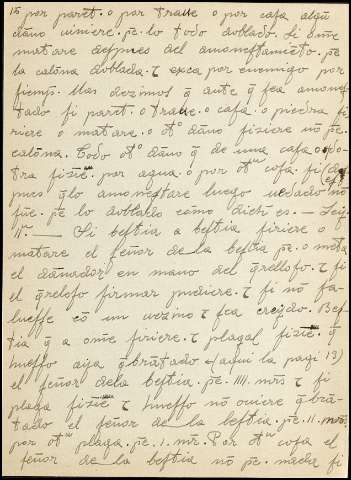 to por paret. o por traue o por casa algũ
dãno uiniere. pe. lo todo doblado. Si ome
matare depues del amonestamieto. pe.
la calõna doblada. τ exca por enemigo por
siemp. Mas dezimos q̃ ante q̃ sea amones
tado si paret. o traue. o casa. o piedra fi
riere o matare. o otº dãno fiziere nõ pe.
calõna. Todo otº dãno q̃ de una casa a o
tra fizie. por agua. o por otª cosa. si des
pues q̃lo amonestare luego uedado nõ
fue. pe lo doblado cómo dich es. — Ley
1ª. — Si bestia a bestia firiere o
matare el señor de la bestia pe. o meta
el dãnador en mano del q̃relloso. τ si
el q̃reloso firmar pudiere. τ si nõ fa
luesse cõ un uezino τ sea creydo. Bes
tia q̃ a ome firiere. τ plagal fizie. q̃
huesso aya q̃brãtado (aqui la pagi 13)
el señor dela bestia. pe. IIII. mrs τ si
plaga fizie τ huesso nõ ouiere q̃brã
tado el señor de la bestia. pe. II. mrs.
por otª plaga. pe. I. mr. Por otª cosa el
señor de la bestia nõ pe. nada si